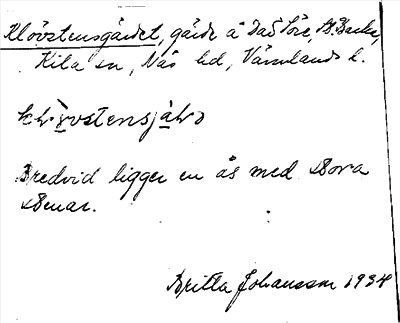 Klövstensgärdet, gärde å Das Söre, St. Backa,
Kila sn, Näs hd, Värmlands l.
Bredvid ligger en ås med stora
stenar.
Britta Johansson 1934